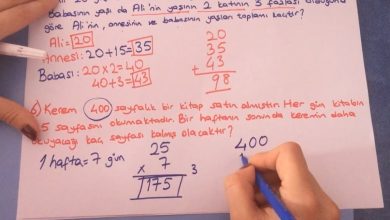 Babasının yaşı da Ali'nin yaşının 2 katının 3 fazlası olduğuna
göre Ali'nin, annesinin ve babasının yaşları toplamı kaçtır?
Ali = 20
Annesi: 20+15=35
Babası: 20x2=40
40+3=43
20
35
+ 43
98
6) Kerem 400 sayfalık bir kitap satın almıştır. Her gün kitabın
5 sayfasını okumaktadır. Bir haftanın sonunda keremin daha
okuyacağı kaç sayfası kalmış olacaktır?
1 hafta = 7 gün
25
x 7
175
3
400